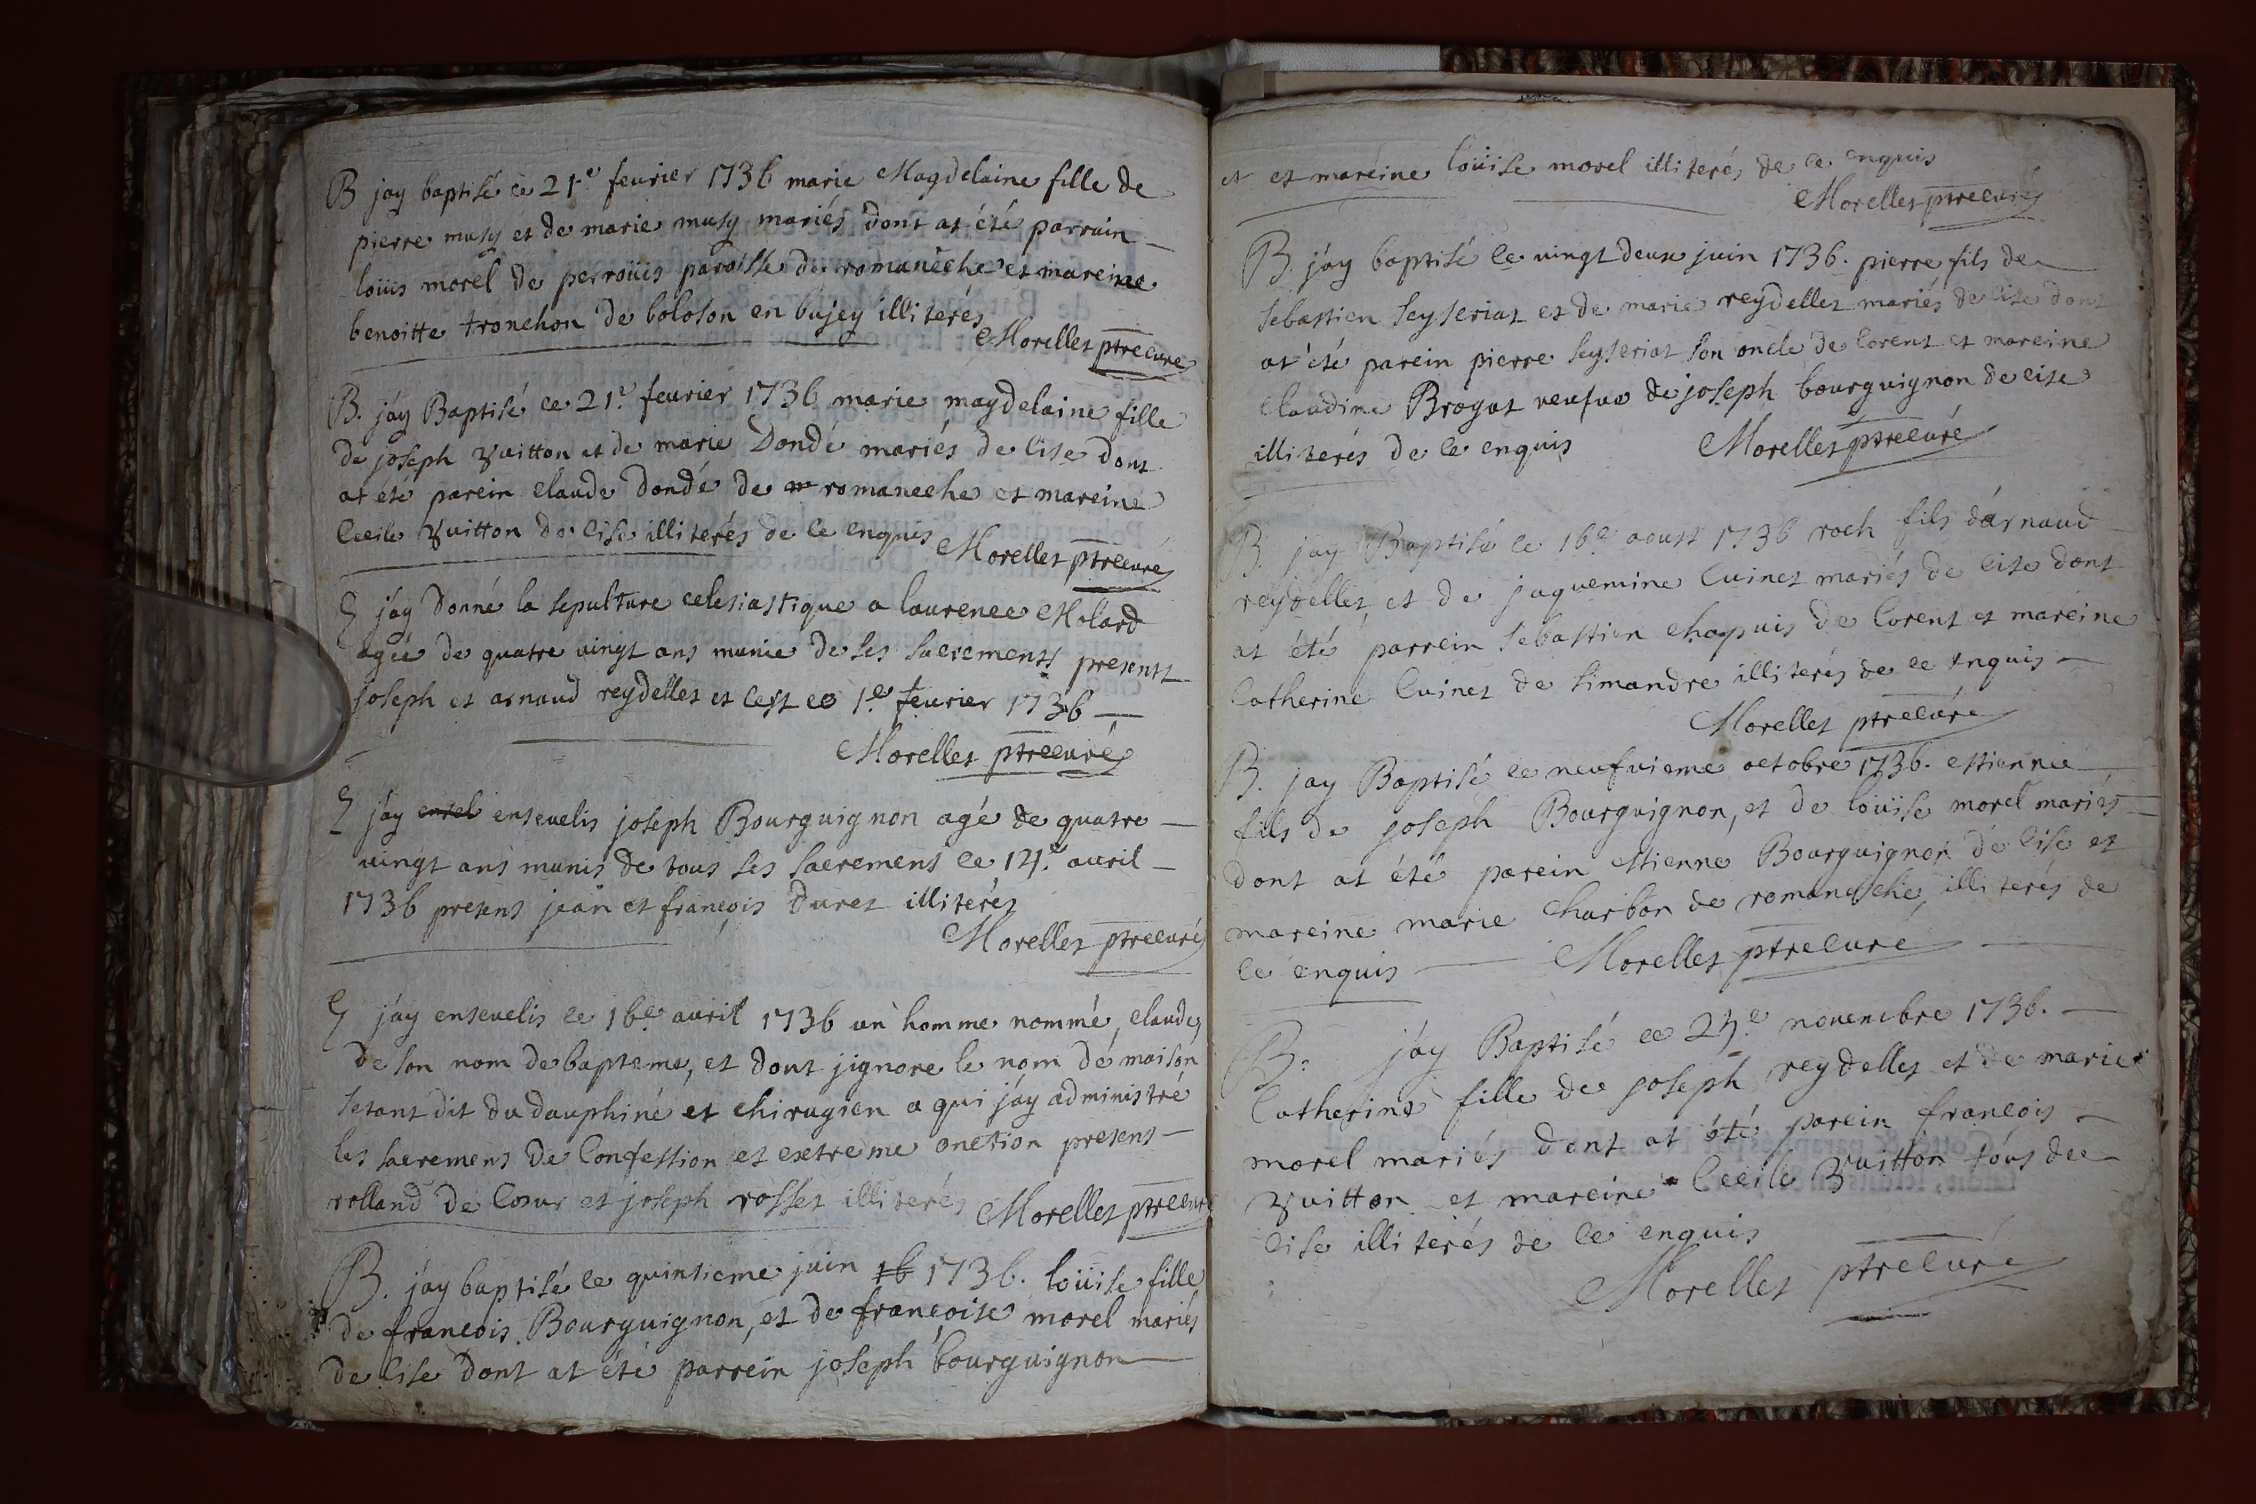 B jay baptisé ce 21.e feurier 1736 marie Magdelaine fille de
pierre musy et de marie musy mariés dont at été parrain
loüis morel de perroüis paroisse de romanêche et mareine
benoitte tronchon de boloson en bujey illiterés
Morellet ptre curé
B. jáy Baptisé ce 21.e feurier 1736 marie magdelaine fille
de joseph vuitton et de marie Dondé mariés de cise dont
at été parein claude dondé de romaneche et mareine
Cecile vuitton de cise illiterés de ce enquis
Morellet ptre curé
E jáy donné la sepulture celesiastique a laurence Molard
agée de quatre vingt ans munie de ses sacrements presents
joseph et arnaud reydellet et cest ce 1.er feurier 1736
Morellet ptre curé
E jáy ensel enseuelis joseph Bourguignon agé de quatre
vingt ans munis de tous ses sacremens ce 14.e auril
1736 presens jean et françois Duret illiterés
Morellet ptre curé
E jáy enseuelis ce 16.e auril 1736 un homme nommé claude,
de son nom de bapteme, et dont jignore le nom de maison
setant dit du dauphiné et chirugien a qui jáy administré
les sacremens de Confession et extreme onction presens
rolland de Cour et joseph rosset illiterés
Morellet ptre curé
B. jáy baptisé ce quinsieme juin 16 1736. loüise fille
de françois Bourguignon, et de françoise morel mariés
de cise dont at été parrein joseph bourguignon
et et mareine loüise morel illiterés de ce enquis
Morellet ptre curé
B. jáy baptisé ce vingt deux juin 1736. pierre fils de
sebastien seyseriat et de marie reydellet mariés de cise dont
at été parein pierre seyseriat son oncle de Corent et mareine
claudine Brogat veufue de joseph bourguignon de cise
illiterés de ce enquis
Morellet ptre curé
B. jay Baptisé ce 16.e aoust 1736 roch fils dárnaud
reydellet et de jaquemine Cuinet mariés de cise dont
at été parrein sebastien chapuis de Corent et mareine
Catherine Cuinet de simandre illiterés de ce enquis
Morellet ptre curé
B. jay Baptisé ce neufuieme octobre 1736. estienne
fils de joseph Bourguignon, et de loüise morel mariés
dont at été parein estienne Bourguignon de cise et
mareine marie Charbon de romaneche, illiterés de
ce enquis
Morellet ptre curé
B. jáy Baptisé ce 25.e nouembre 1736.
Catherine fille de joseph reydellet et de marie
morel mariés dont at été parein françois
vuitton et mareine Cecile vuitton tous de
cise illiterés de ce enquis
Morellet ptre curé